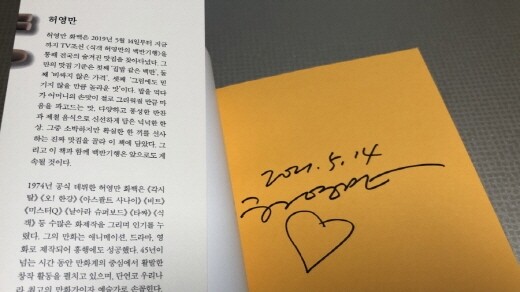 허영만
허영만 화백은 2019년 5월 14일부터 지금
까지 TV조선 《식객 허영만의 백반기행》을
통해 전국의 숨겨진 맛집을 찾아다녔다. 그
만의 맛집 기준은 첫째 '집밥 같은 백반', 둘
째 '비싸지 않은 가격', 셋째 '그럼에도 믿
기지 않을 만큼 놀라운 맛'이다. 밥을 먹다
가 어머니의 손맛이 절로 그리워질 만큼 마
음을 파고드는 맛, 다양하고 풍성한 반찬
과 제철 음식으로 신선하게 담은 넉넉한 한
상, 그중 소박하지만 확실한 한 끼를 선사
하는 진짜 맛집을 골라 이 책에 담았다. 그
리고 이 책과 함께 백반기행은 앞으로도 계
속될 것이다.
1974년 공식 데뷔한 허영만 화백은 《각시
탈》 《오! 한강》 《아스팔트 사나이》 《비트》
《미스터Q》 《날아라 슈퍼보드》 《타짜》 《식
객》 등 수많은 화제작을 그리며 인기를 누
렸다. 그의 만화는 애니메이션, 드라마, 영
화로 제작되어 흥행에도 성공했다. 45년이
넘는 시간 동안 만화계의 중심에서 활발한
창작 활동을 펼치고 있으며, 단언코 우리나
라 최고의 만화가이자 예술가로 손꼽힌다.
2021. 5. 14
허영만